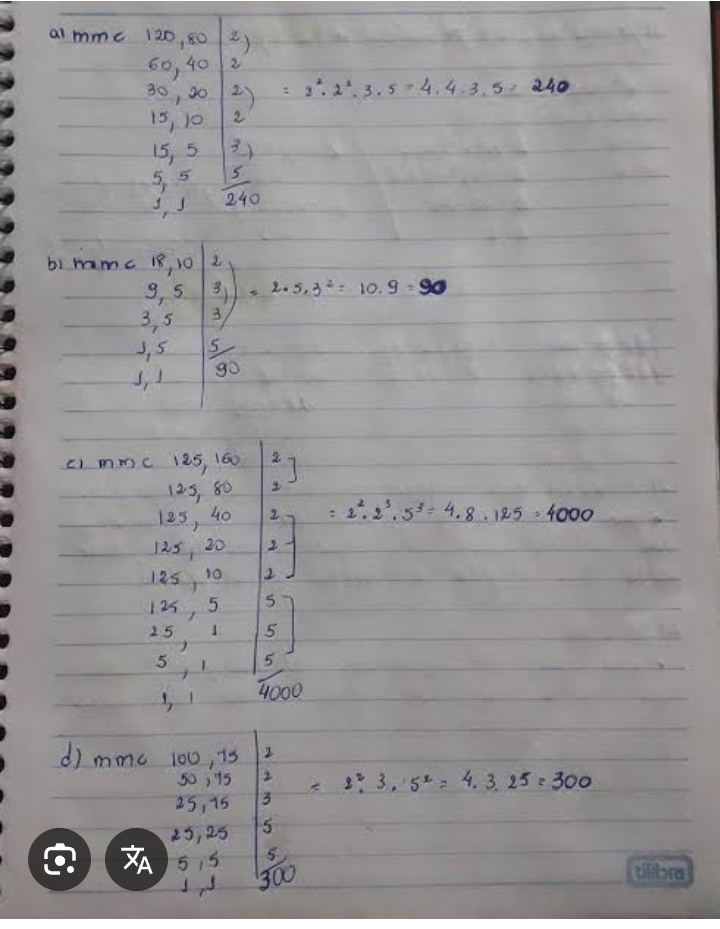 a) mmc 120,80 | 2
60,40 | 2
30,20 | 2 = 2². 2². 3. 5 = 4. 4. 3. 5 = 240
15,10 | 2
15, 5 | 3
5, 5 | 5
1, 1 240
b) mmc 18,10 | 2
9, 5 | 3 = 2.5.3² = 10.9 = 90
3,5 | 3
1,5 | 5
1,1 90
c) mmc 125,160 | 2
125, 80 | 2
125, 40 | 2 = 2². 2³. 5³ = 4. 8. 125 = 4000
125, 20 | 2
125, 10 | 2
125, 5 | 5
25, 1 | 5
5, 1 | 5
1, 1 4000
d) mmc 100,75 | 2
50,75 | 2 = 2². 3. 5² = 4. 3. 25 = 300
25,75 | 3
25,25 | 5
5,5 | 5
1,1 300
tilibra